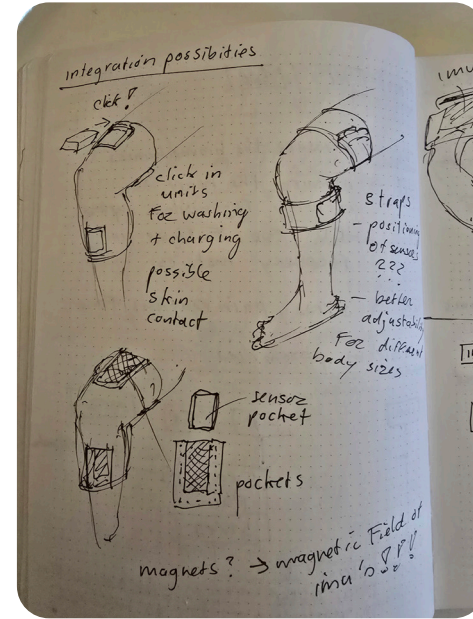 integration possibities
click!
click in
units
For washing
+ charging
possible
skin
contact
straps
- positioning
of sensors
???
...
- better
adjustability
For different
body sizes
sensor
pocket
pockets
magnets? → magnetic Field of
imu's !!!
imu